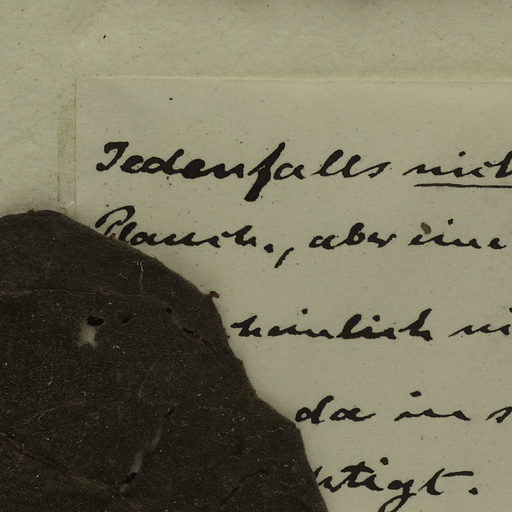 Jedenfalls nich
Planch., aber eine
heinlich ni
da in s
htigt.